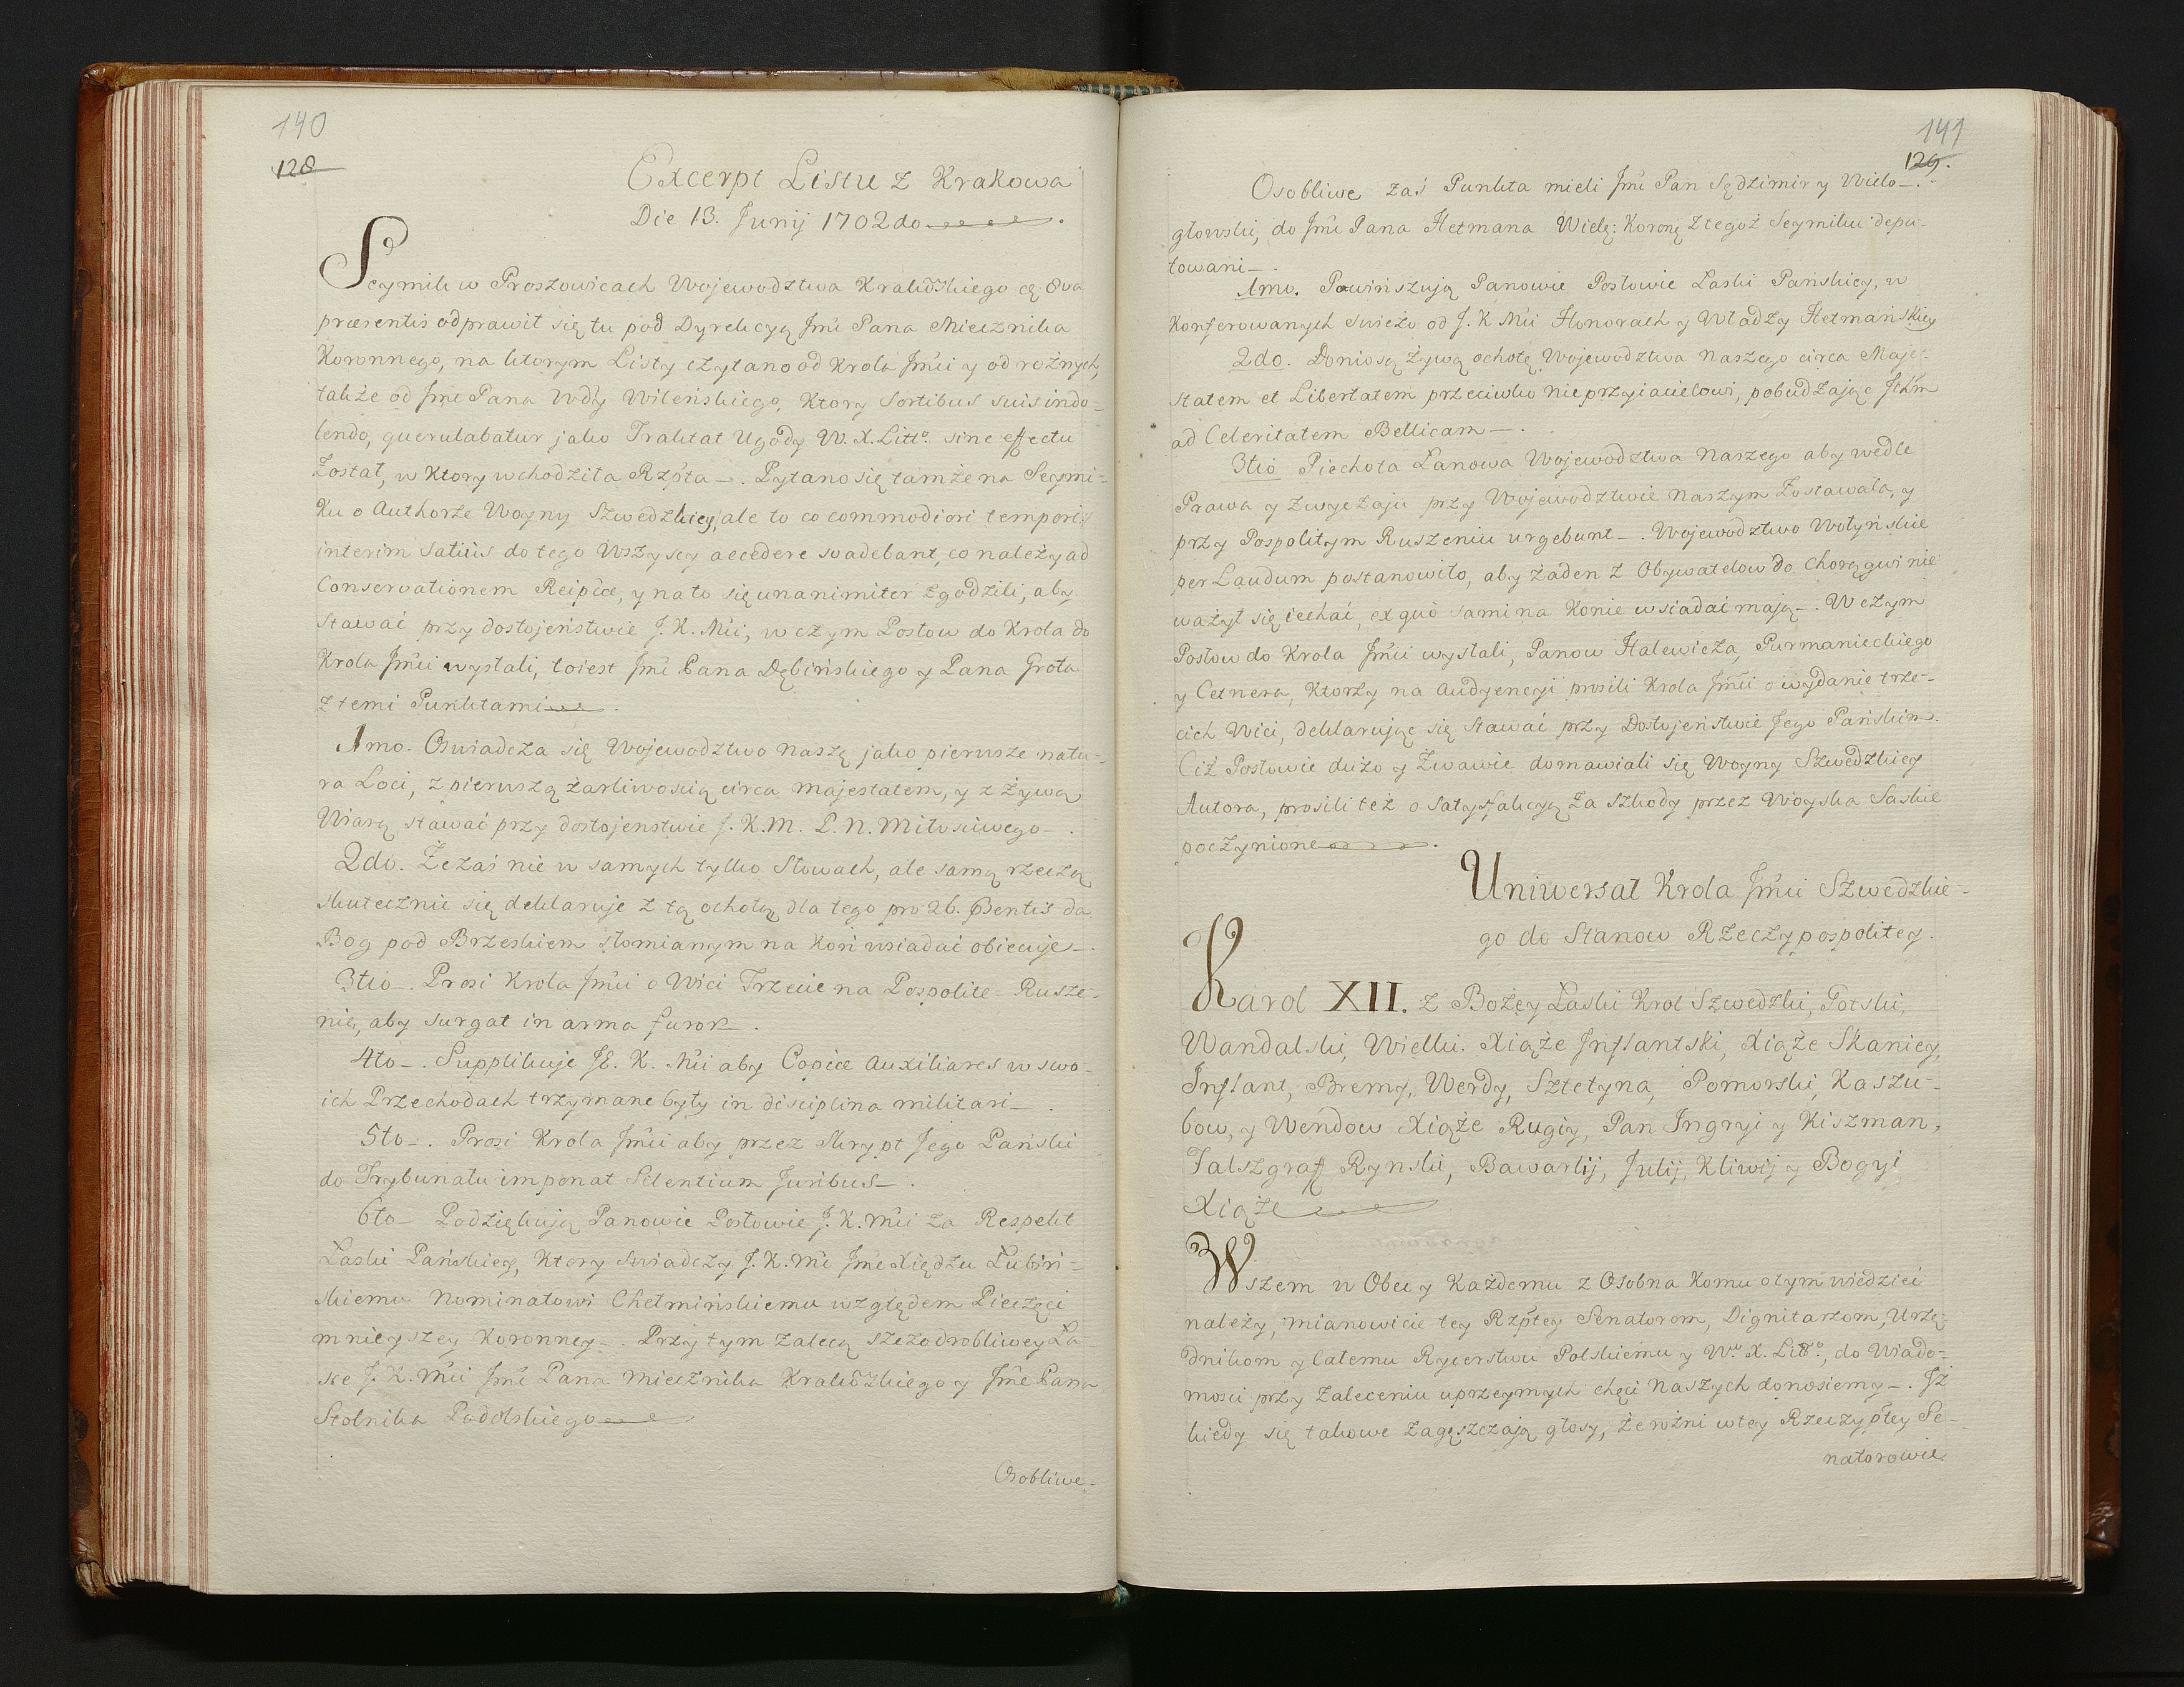 140
128
Excerpt Listu z Krakowa
Die 13. Junij 1702do
Seymik w Proszowicach Wojewodztwa Krakowskiego cą 8va
præsentis odprawił się tu pod Dyrekcyą Jmći Pana Miecznika
Koronnego, na ktorym Listy czytano od Krola Jmći y od rożnych,
także od Jmći Pana Wdy Wileńskiego, Ktory Sortibus suis indo-
lendo, querulabatur jako Traktat Ugody W. X. Litto. sine effectu
Został, w Ktory wchodziła Rzpta -. Pytano się tamże na Seymi-
Ku o Authorze Woyny Szwedzkiey, ale to co commodiori tempori;
interim Satiùs do tego Wszyscy accedere svadebant, co należy ad
Conservationem Reipcæ, y na to się unanimiter Zgodzili, aby
Stawać przy dostojeństwie J. K. Mći, w czym Posłow do Krola do
Krola Jmći wysłali, toiest Jmći Pana Dębińskiego y Pana Grota
z temi Punktami.
1mo. Oswiadcza się Wojewodztwo naszę jako pierwsze natu-
ra Loci, z pierwszą żarliwoscią circa majestatem, y z Żywą
Wiarą stawać przy dostojenstwie J. K. M. P. N. Miłosciwego -.
2do. Że zaś nie w samych tylko Słowach, ale samą rzeczą
skutecznie się deklaruje z tą ochotą dla tego pro 26. Psentis da
Bog pod Brzeskiem słomianym na Koń wsiadać obiecuje -.
3tio -. Prosi Krola Jmći o Wici Trzecie na Pospolite Rusze-
nię, aby surgat in arma furor.
4to -. Supplikuje JE. K. Mći aby Copiæ Auxiliares w swo-
ich Przechodach trzymane były in disciplina militari -.
5to -. Prosi Krola Jmći aby przez Skrypt Jego Pański
do Trybunału imponat Silentium Juribus -.
6to - Podziękują Panowie Posłowie J. K. Mći za Respekt
Łaski Pańskiey, Ktory swiadczy J. K. Mć Jmć Xiędzu Łubiń-
skiemu Nominatowi Chełmińskiemu względem Pieczęci
mnieyszey Koronney -. Przy tym zalecą szczodrobliwey Ła
sce J. K. Mći Jmć Pana Miecznika Krakowskiego y Jmć Pana
Stolnika Podolskiego
Osobliwe-
141
129.
Osobliwe zaś Punkta mieli Jmć Pan Sędzimir y Wielo-
głowski, do Jmć Pana Hetmana Wielę: Koronę z tegoż Seymiku depu-
towani -.
1mo. Powinszują Panowie Posłowie Łaski Pańskiey, w
Konferowanych swieżo od J. K Mći Honorach y Władzy Hetmańskiey
2do. Doniosą żywą ochotę Wojewodztwa Naszego circa Maje-
statem et Libertatem przeciwko nieprzyiacielowi, pobudzając Jchm
ad Celeritatem Bellicam -.
3tio Piechota Łanowa Wojewodztwa Naszego aby wedle
Prawa y Zwyczaju przy Wojewodztwie Naszym Zostawała, y
przy Pospolitym Ruszeniu urgebunt -. Wojewodztwo Wołyńskie
per Laudum postanowiło, aby żaden z Obywatelow do Chorągwi nie
ważył się iechać, ex quo sami na Konie wsiadać mają -. W czym
Posłow do Krola Jmći wysłali, Panow Halewicza, Purmanieckiego
y Cetnera, Ktorzy na Audyencyi prosili Krola Jmći o wydanie trze-
cich Wici, deklarując się Stawać przy Dostojeństwie Jego Pańskim.
Ciż Posłowie dużo y Żwawie domawiali się Woyny Szwedzkiey
Autora, prosili też o Satysfakcyą Za Szkody przez Woyska Saskie
poczynione.
Uniwersał Krola Jmći Szwedzkie-
go do Stanow Rzeczypospolitey.
Karol XII. z Bożey Łaski Krol Szwedzki, Gotski,
Wandalski, Wielki Xiąże Jnflantski, Xiąże Skaniey,
Jnflant, Bremy, Werdy, Sztetyna, Pomorski, Kaszu-
bow, y Wendow Xiąże Rugiy, Pan Ingryi y Kiszman,
Falszgraff Rynski, Bawarlij, Julij, Kliwij y Bogyi
Xiąże
Wszem w Obec y Każdemu z Osobna Komu o tym wiedzieć
należy, mianowicie tey Rzptey Senatorom, Dignitarzom, Urzę-
dnikom y Całemu Rycerstwu Polskiemu y Wo X. Litto, do Wiado-
mosci przy Zaleceniu uprzeymych chęci Naszych donosiemy -. Jż
kiedy się takowe zagęszczają głosy, że rożni w tey Rzeczyptey Se-
natorowie